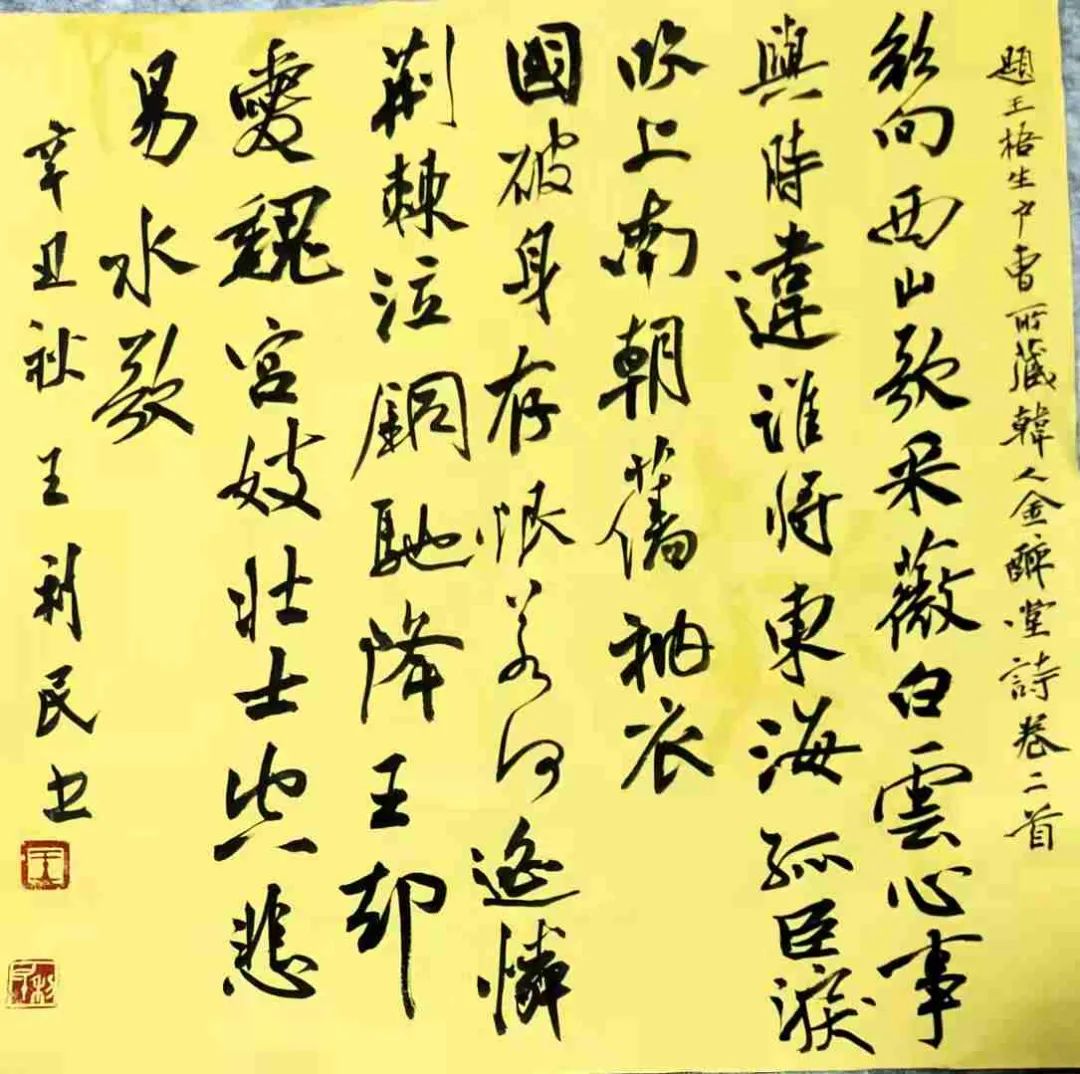 題王梧生户曹所藏韓人金醉堂詩卷二首
欲向西山歌采薇白雲心事
與時違誰將東海孤臣淚
吹上南朝舊衲衣
國破身存恨若何遙憐
荊棘泣銅馳降王却
愛魏宮妓壯士興悲
易水歌
辛丑秋王利民书
王